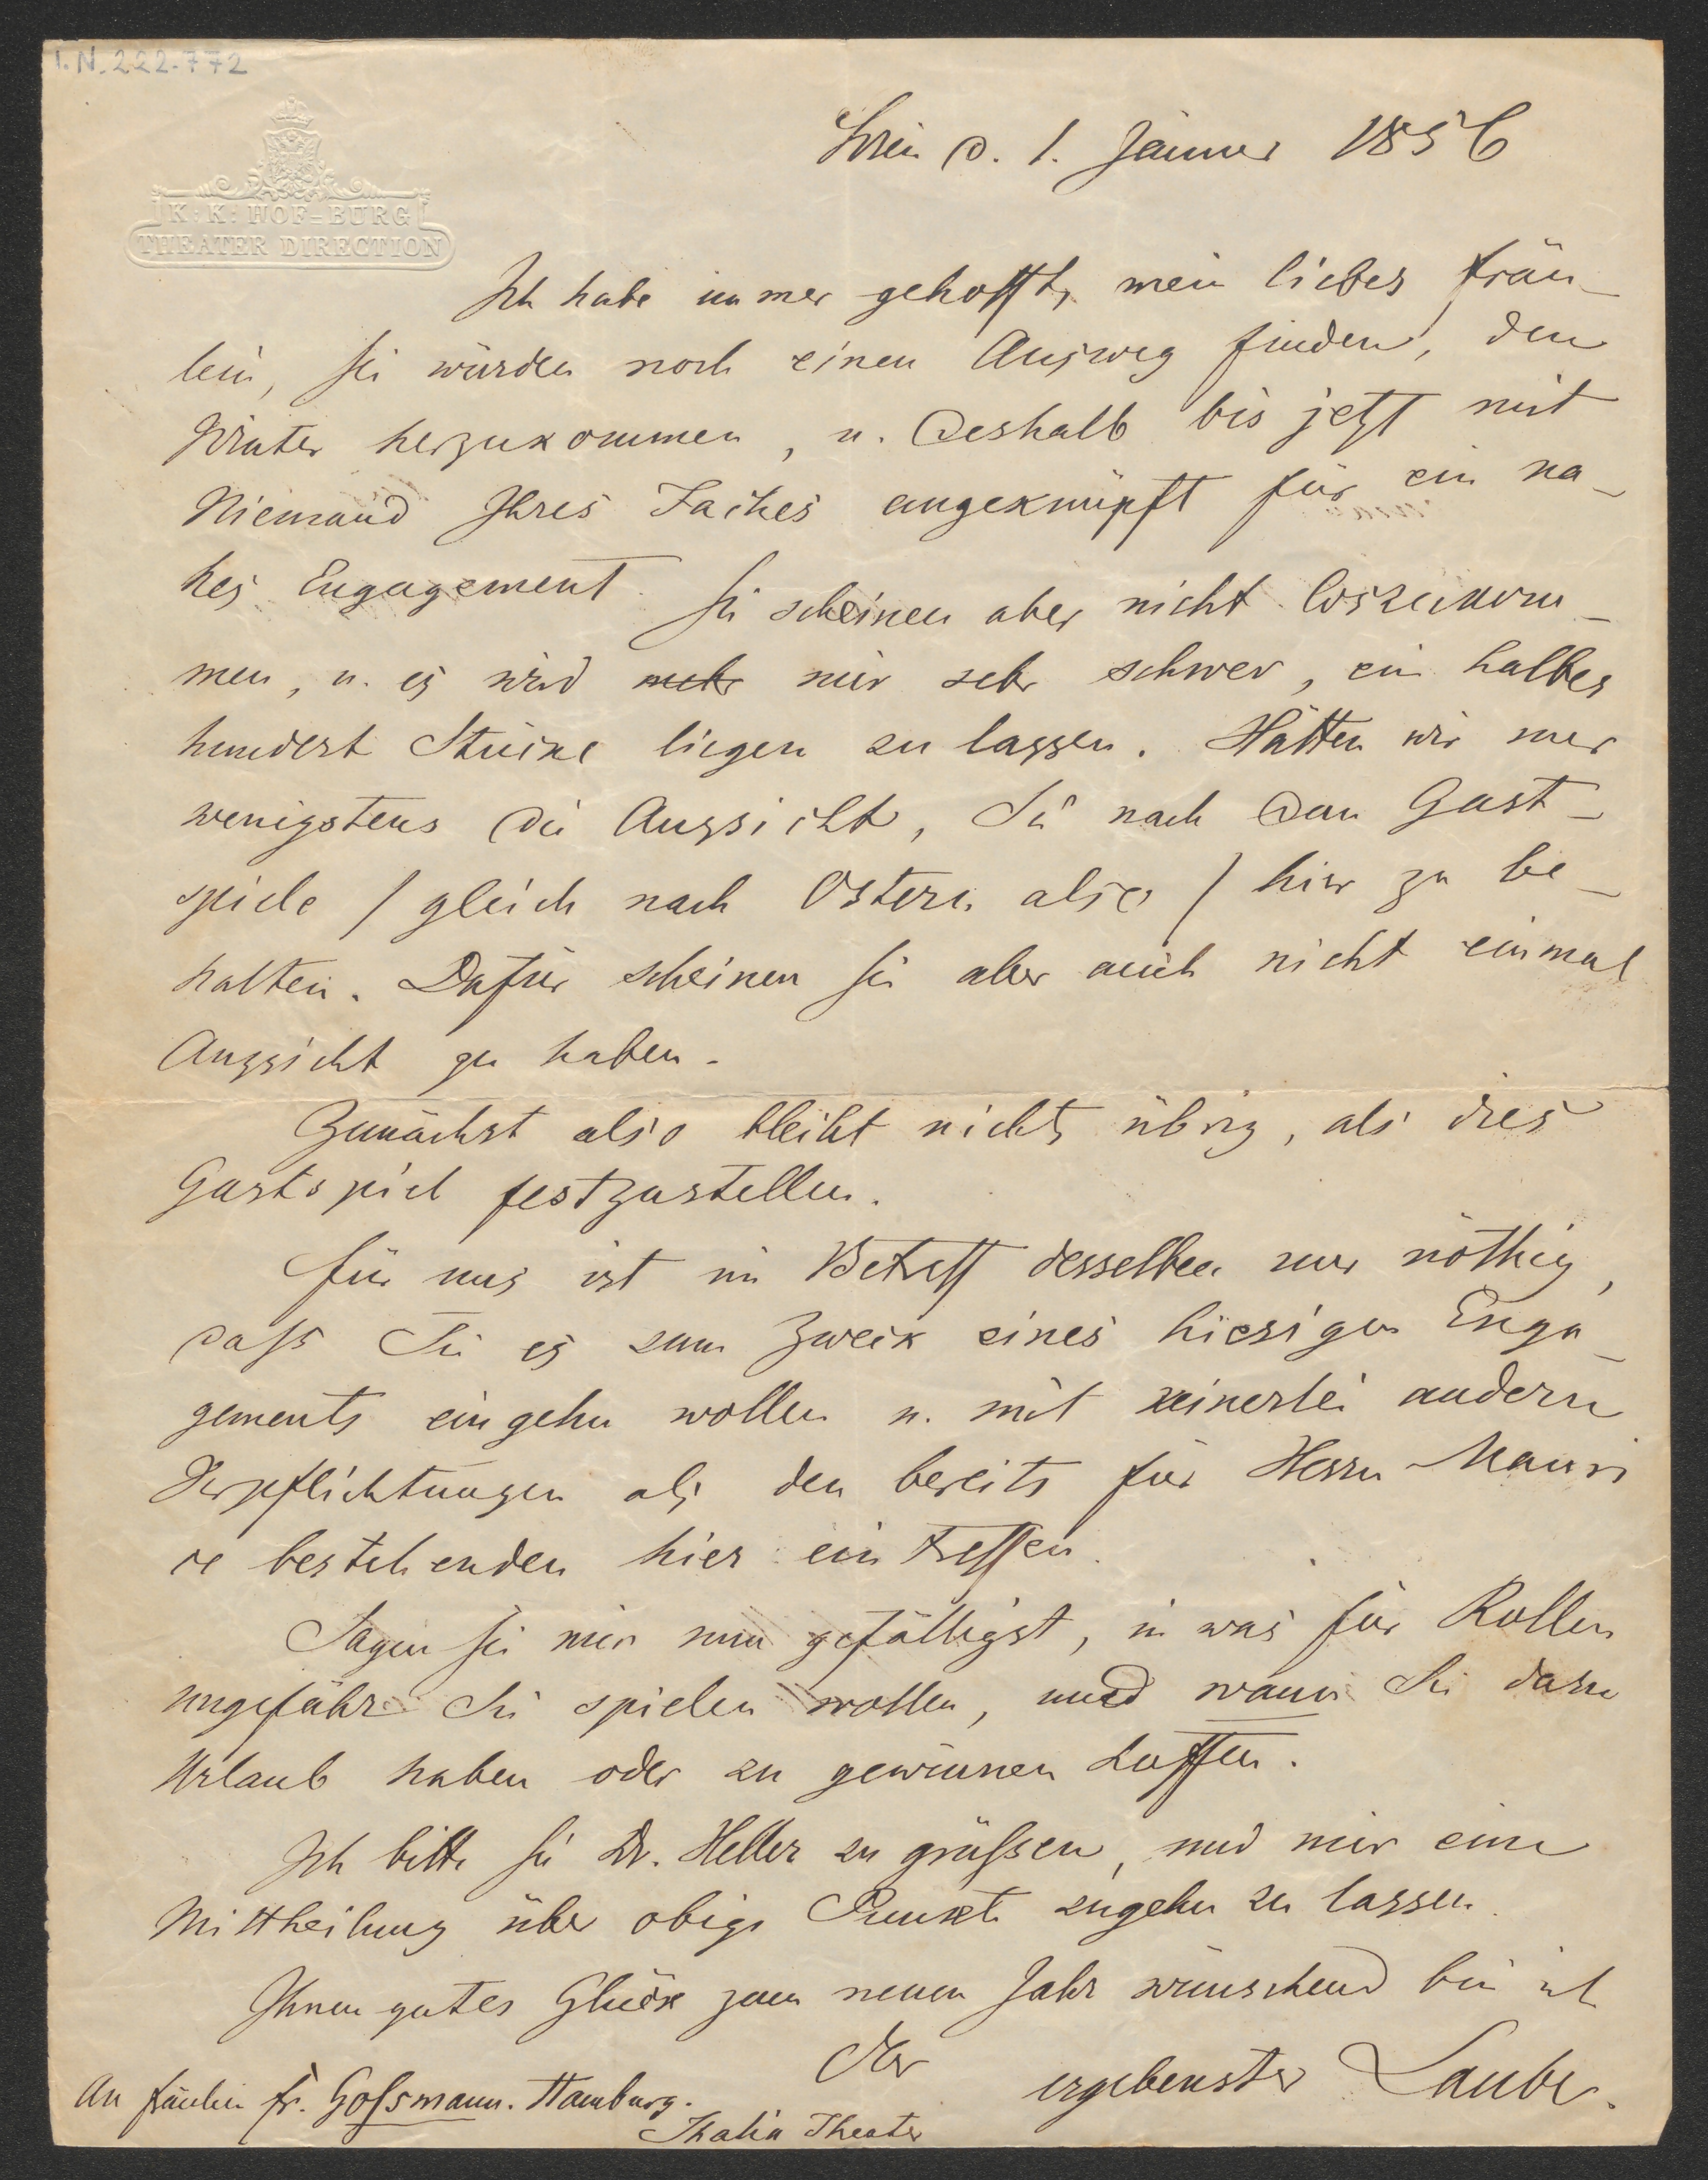 I.N. 222.772
Wien d. 1. Jänner 1856
K: K: HOF-BURG
THEATER DIRECTION
Ich habe immer gehofft, mein liebes Fräu-
lein, Sie würden noch einen Ausweg finden, den
Winter herzukommen, u. deshalb bis jetzt mit
Niemand Ihres Faches angeknüpft für ein na-
hes Engagement. Sie scheinen aber nicht loszukom-
men, u. es wird mir sehr schwer, ein halbes
hundert Stücke liegen zu lassen. Hätten wir nur
wenigstens die Aussicht, Sie nach dem Gast-
spiele / gleich nach Ostern also / hier zu be-
halten. Dafür scheinen Sie aber auch nicht einmal
Aussicht zu haben.
Zunächst also bleibt nichts übrig, als dies
Gastspiel festzustellen.
Für uns ist in Betreff desselben nur nöthig,
daß Sie es zum Zweck eines hiesigen Enga-
gements eingehn wollen u. mit keinerlei andern
Verpflichtungen als den bereits für Herrn Mauri
ce bestehenden hier eintreffen.
Sagen Sie mir nun gefälligst, in was für Rollen
ungefähr Sie spielen wollen, und wann Sie dazu
Urlaub haben oder zu gewinnen hoffen.
Ich bitte Sie Dr. Heller zu grüßen, und mir eine
Mittheilung über obige Punkte zugehn zu lassen.
Ihnen gutes Glück zum neuen Jahr wünschend bin ich
der
ergebenster Laube.
An Fräulein Fr. Goßmann. Hamburg.
Thalia Theater